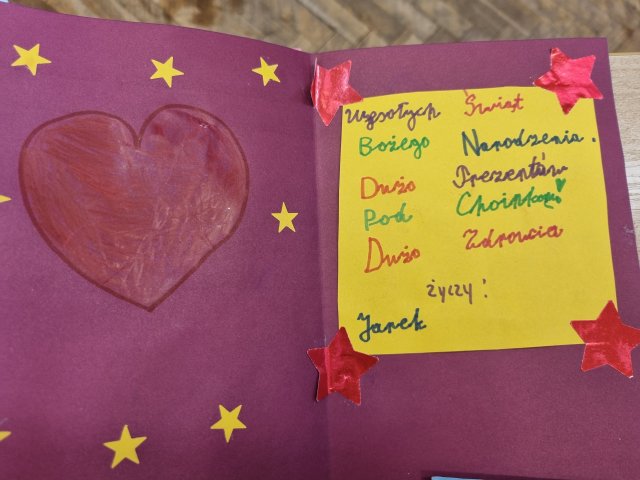 Wesołych Świąt
Bożego Narodzenia.
Dużo Prezentów
Pod Choinką!
Dużo Zdrowia
życzy!
Jarek